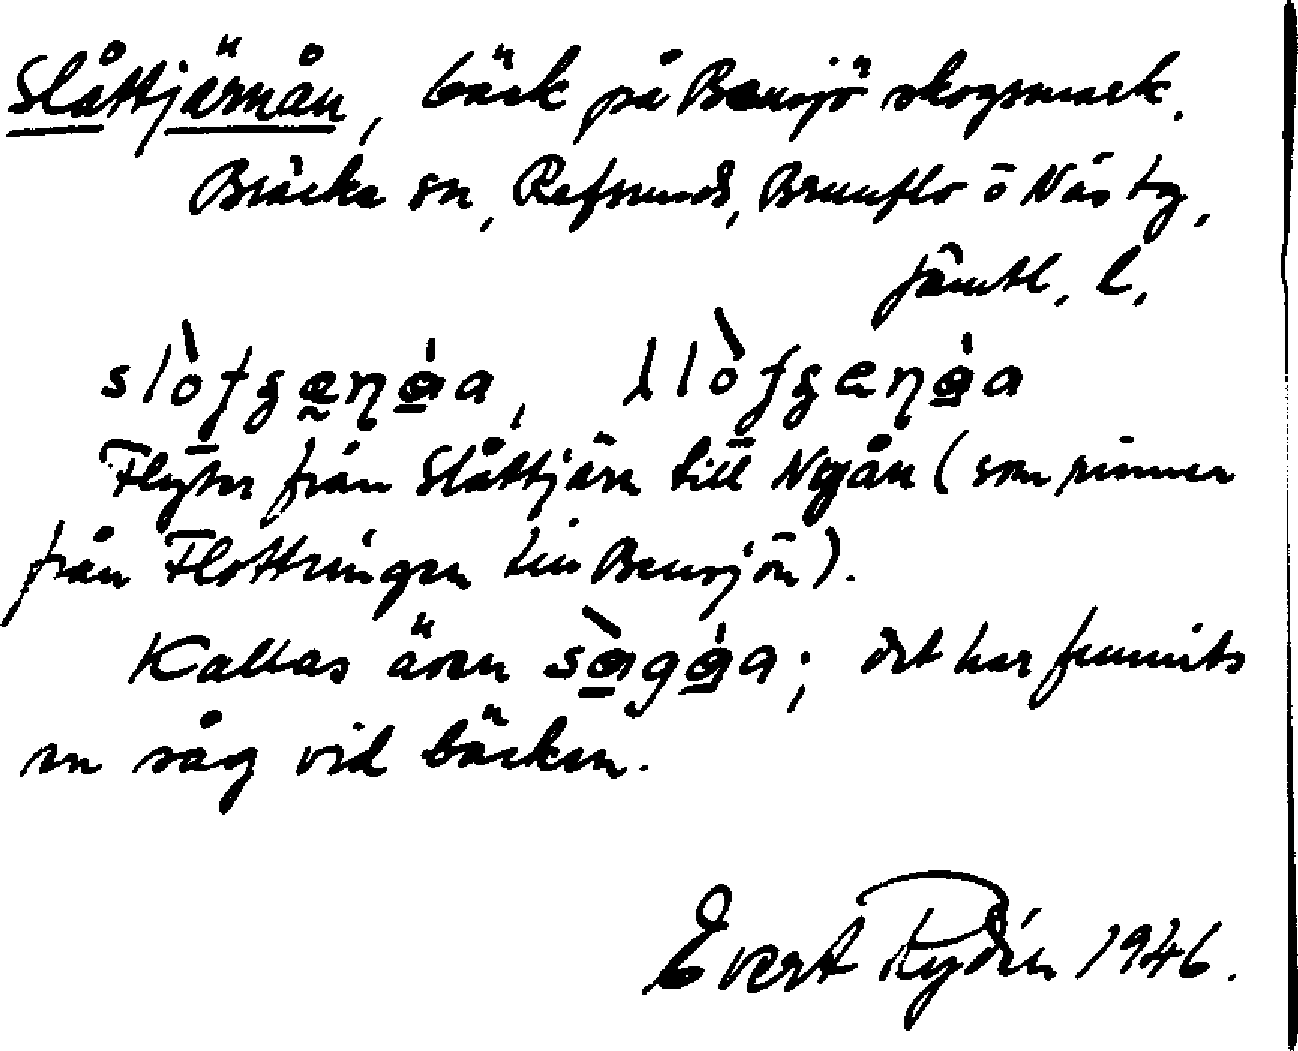 Slåttjärnån, bäck på Bensjö skogsmark.
Bräcke sn, Refsunds, Brunflo o Näs tg,
Jämtl. l.
Flyter från Slåttjärn till Nyån (som rinner
från Flottringen till Bensjön).
Kallas även sàgáa; det har funnits
en såg vid bäcken.
Evert Rydén 1946.